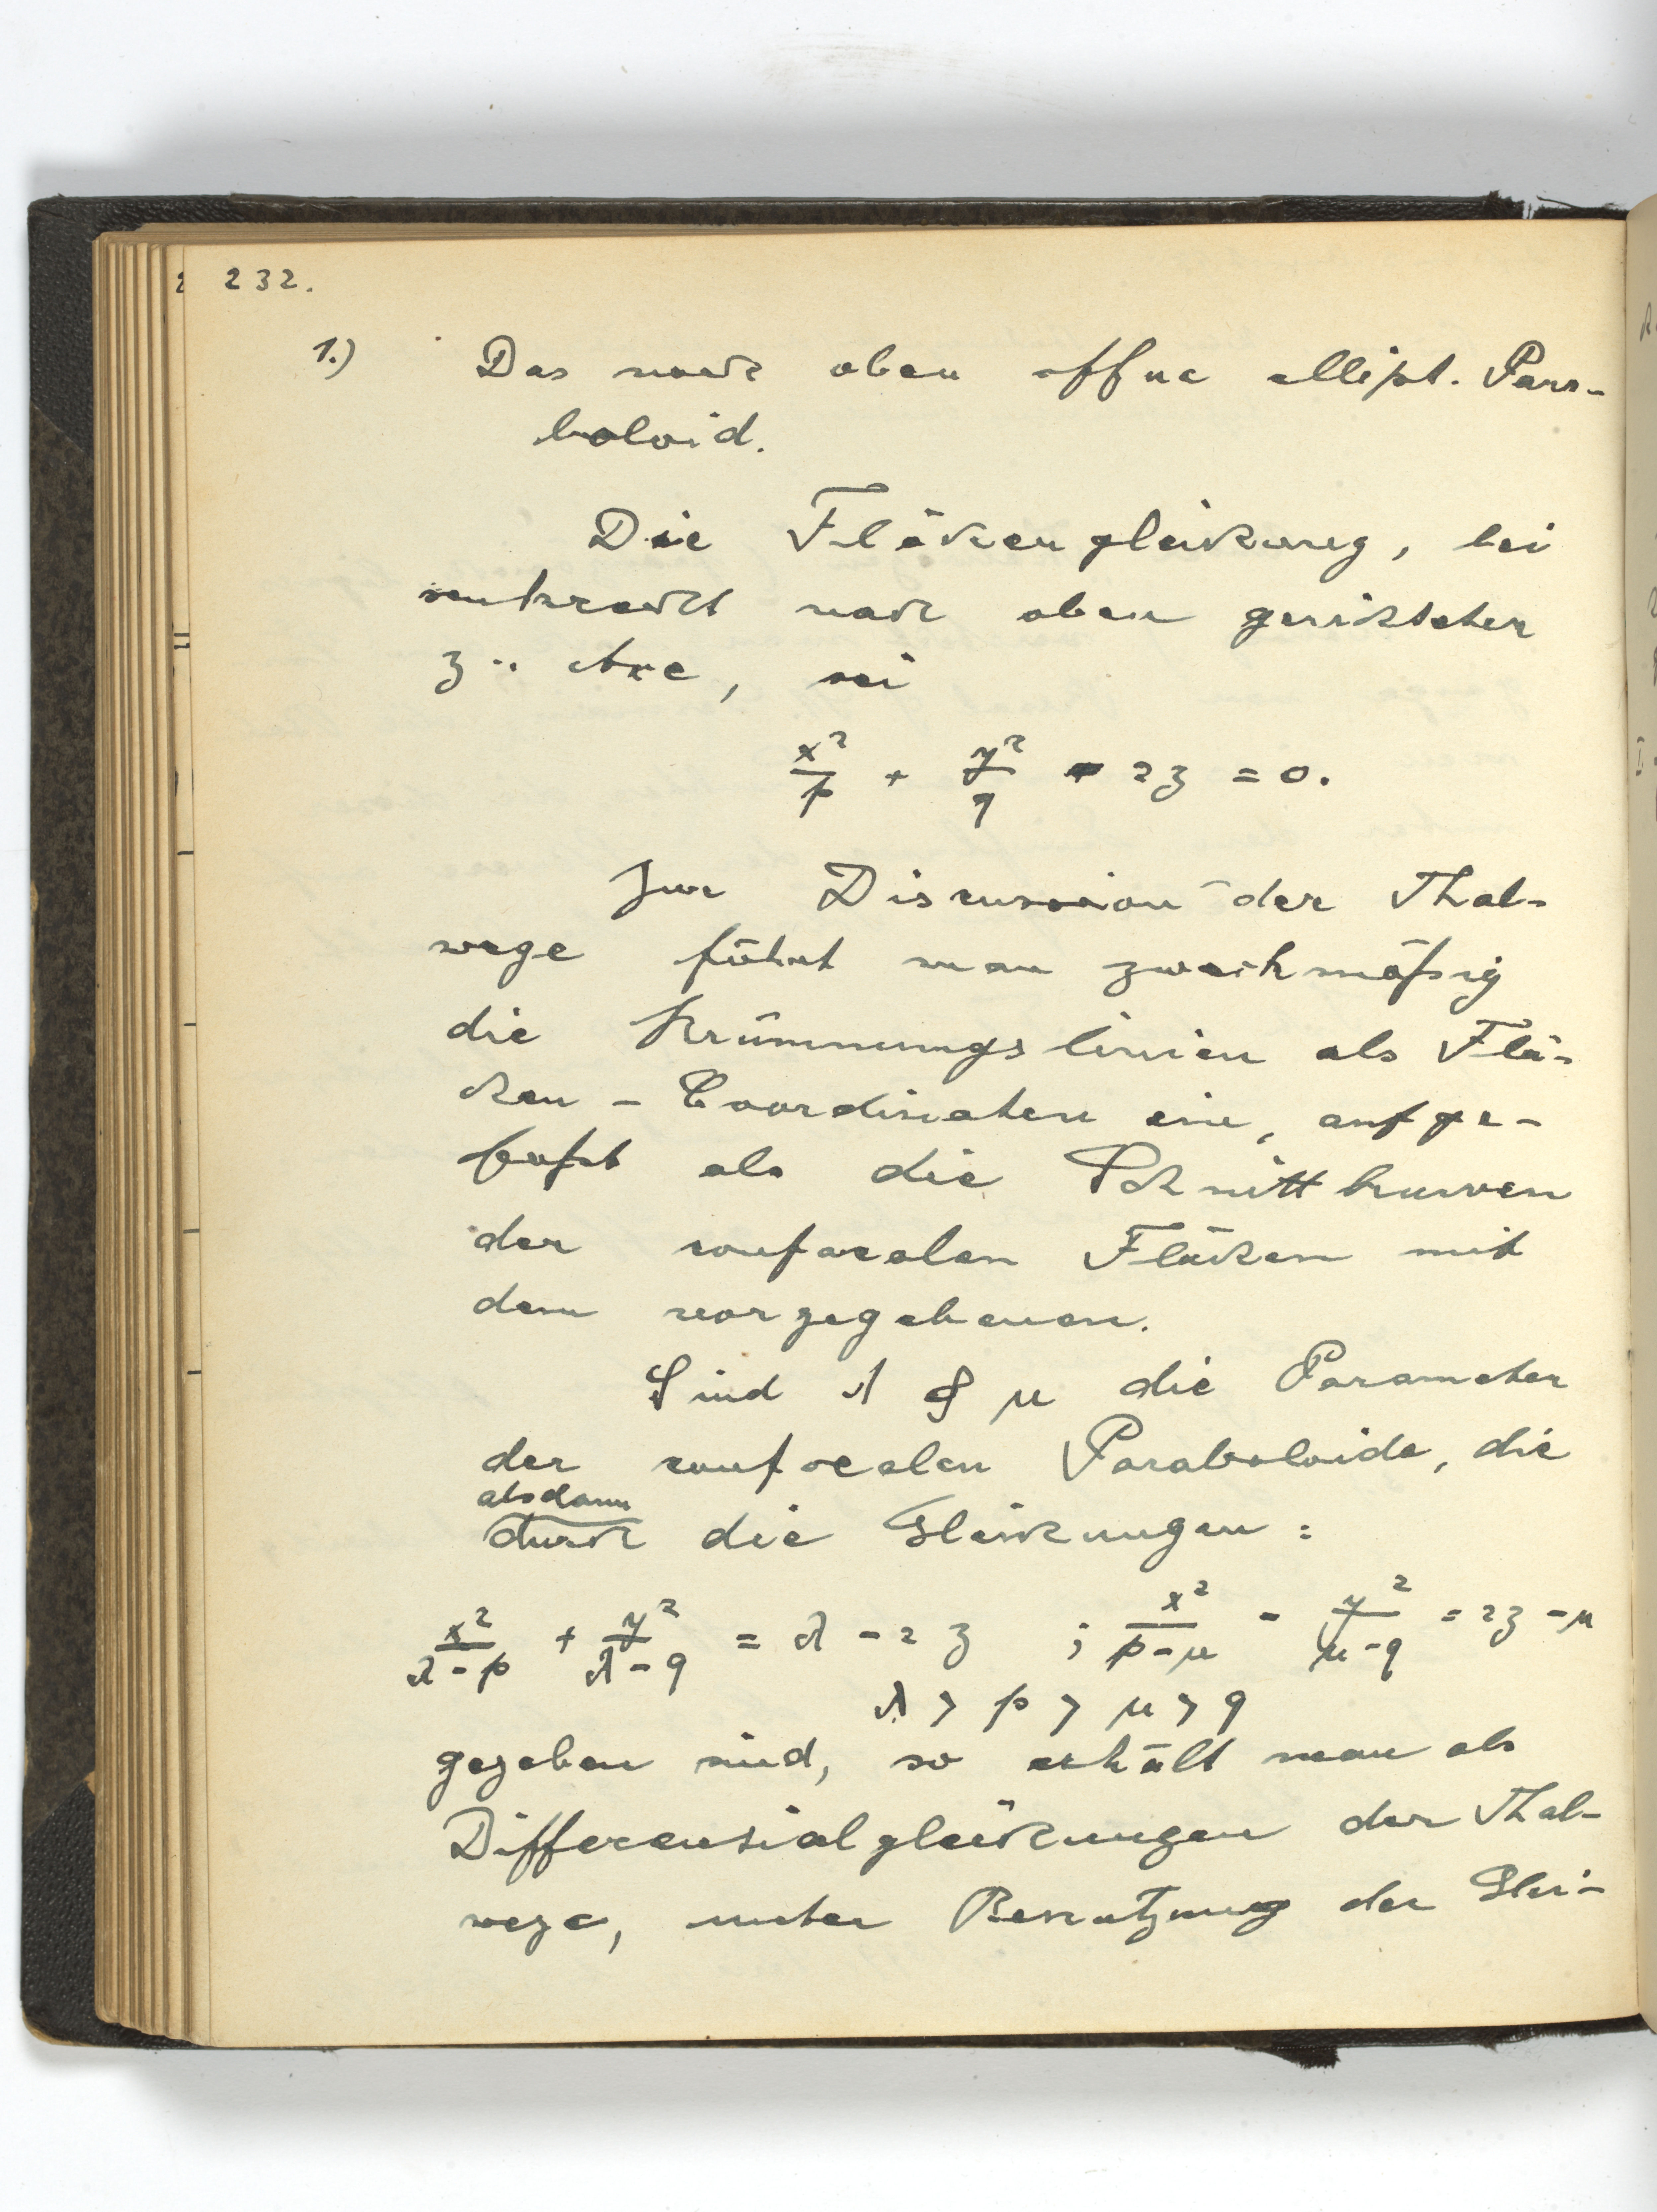 232.
1.) Das nach oben offne ellipt. Para-
boloid.
Die Flächengleichung, bei
senkrecht nach oben gerichteter
z-Axe, sei
x²/p + y²/q - 2z = 0.
Zur Discussion der Thal-
wege führt man zweckmäßig
die Krümmungslinien als Flä-
chen-Coordinaten ein, aufge-
faßt als die Schnittkurven
der confocalen Flächen mit
dem vorgegebenen.
Sind λ & μ die Parameter
der confocalen Paraboloide, die
alsdann
durch die Gleichungen:
x²/(λ-p) + y²/(λ-q) = λ - 2z ; x²/(p-μ) - y²/(μ-q) = 2z - μ
λ > p > μ > q
gegeben sind, so erhält man als
Differensialgleichungen der Thal-
wege, unter Benutzung der Glei-